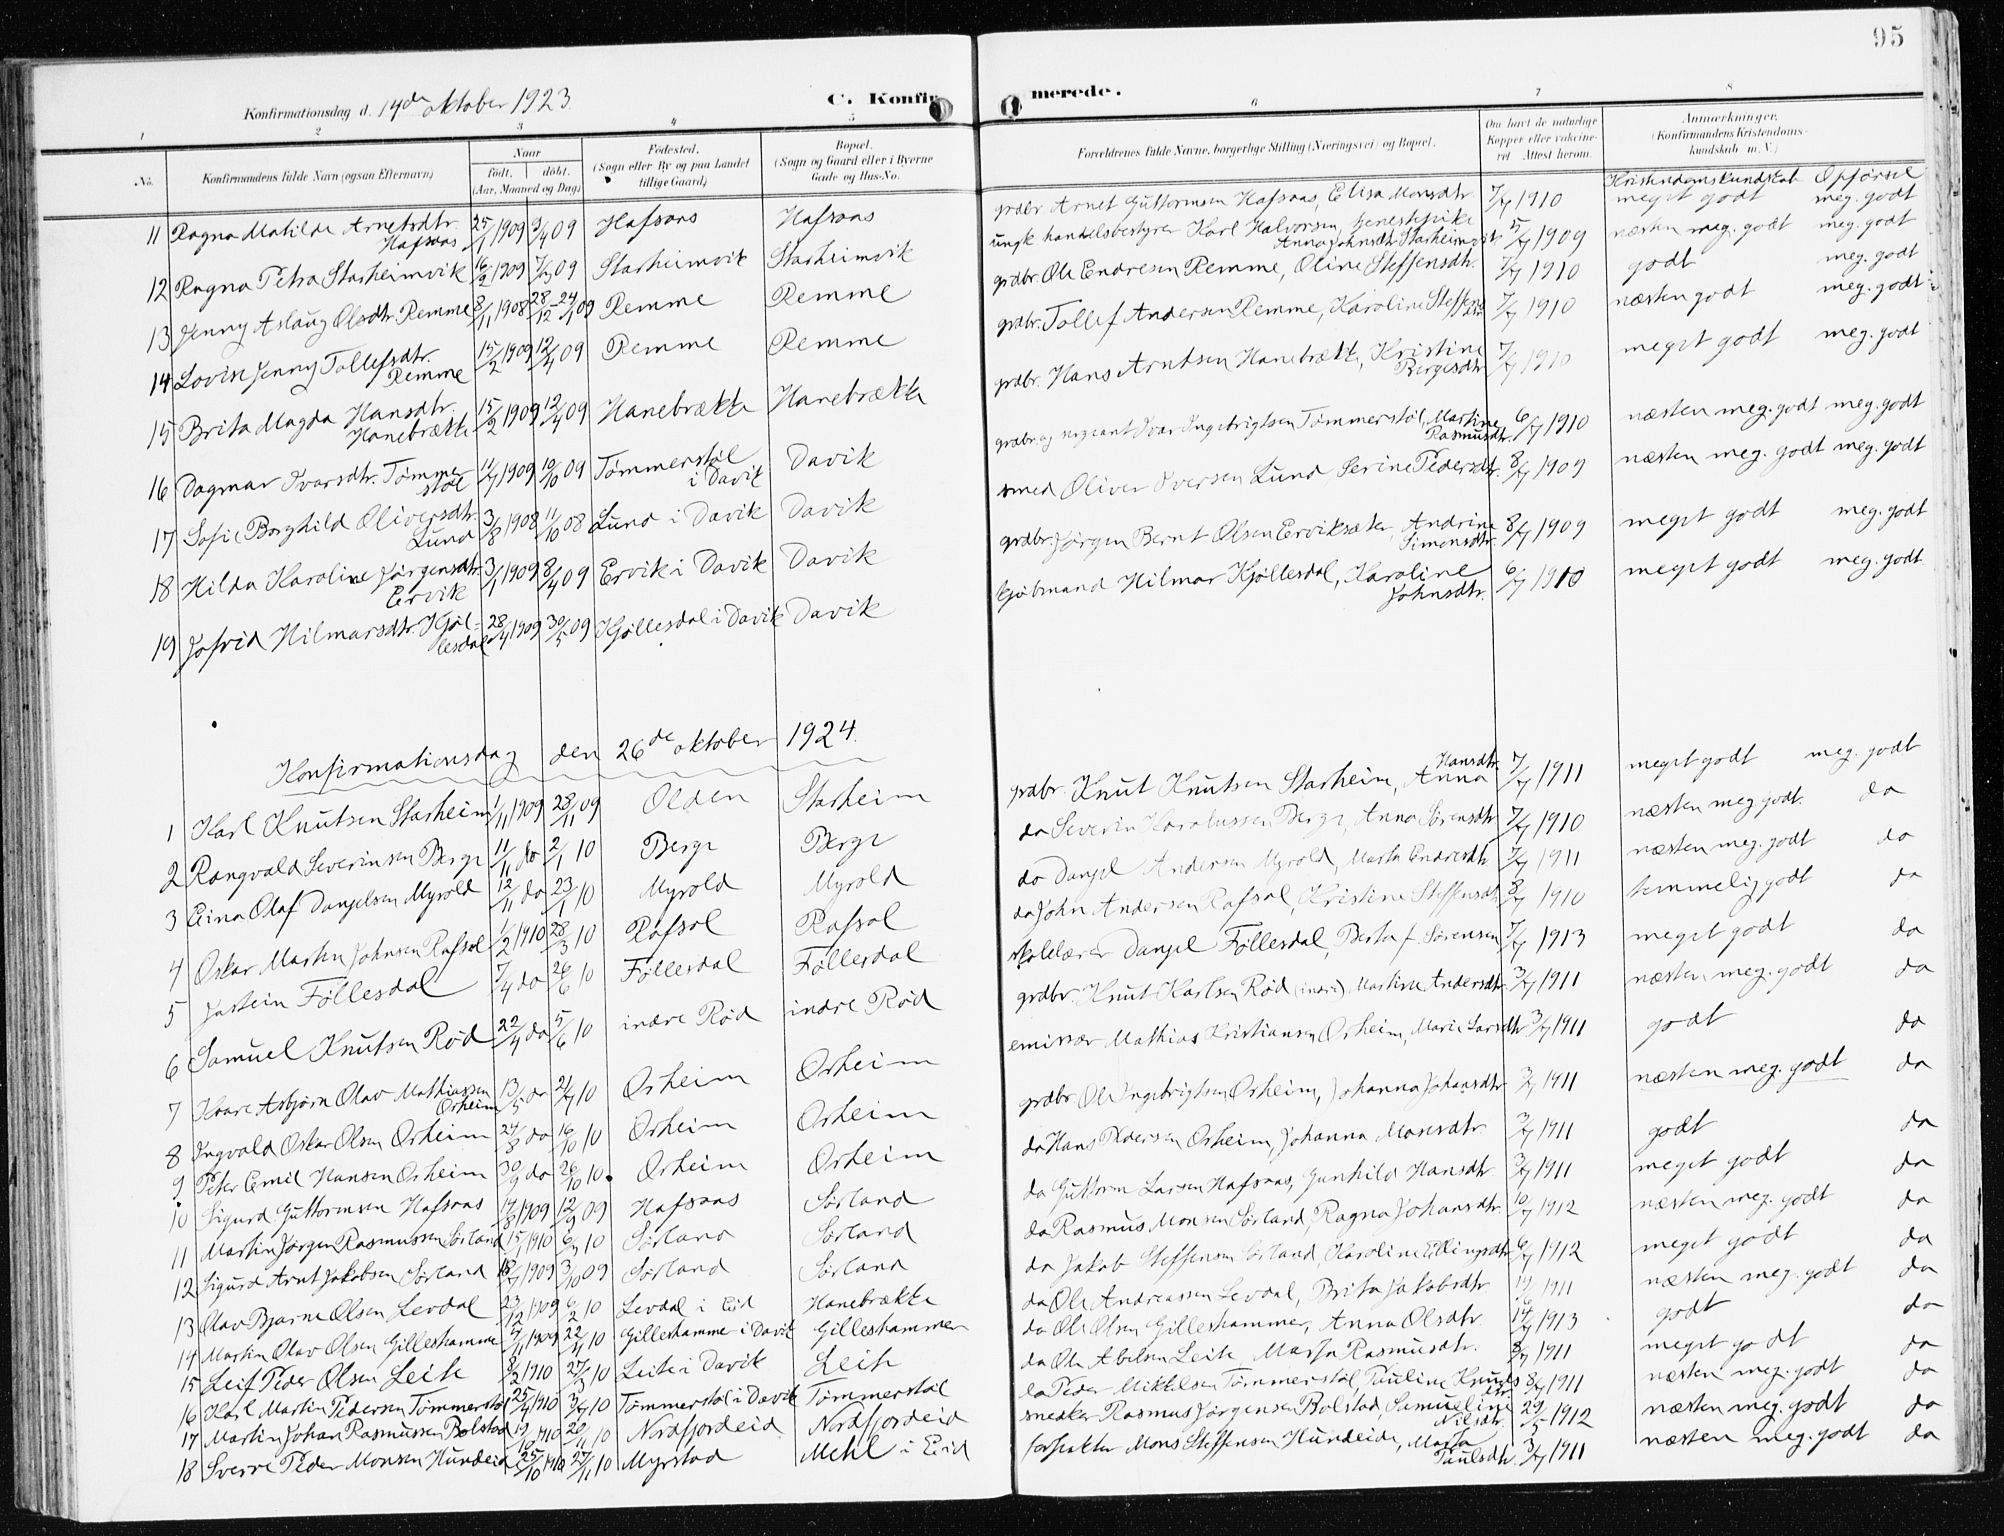 95
Konfirmationsdag d. 14de oktober 1923.
C. Konfirmerede.
1 2 3 4 5 6 7 8
No. Konfirmandens fulde Navn (ogsaa Efternavn) Naar født. døbt. (Aar, Maaned og Dag) Fødested. (Sogn eller By og paa Landet tillige Gaard) Bopæl. (Sogn og Gaard eller i Byerne Gade og Hus-No. Forældrenes fulde Navne, borgerlige Stilling (Næringsvei) og Bopæl. Om havt de naturlige Kopper eller vaccineret Attest herom. Anmærkninger. (Konfirmandens Kristendomskundskab m. V.)
Kristendomskundskab Opførsel
11 Ragna Matilde Arnetsdtr. Hafsaas 25/1 1909 9/4 09 Hafsaas Hafsaas grdbr. Arnet Guttormsen Hafsaas, Elisa Monsdtr. 7/7 1910 meget godt meg. godt
12 Ragna Petra Starheimvik 16/2 1909 7/3 09 Starheimvik Starheimvik ungk. handelsbestyrer Karl Halvorsen, Anna Johnsdtr. Starheimvik 5/7 1909 næsten meg. godt meg. godt
13 Jenny Aslaug Olsdtr. Remme 8/11 1908 28/12-24/1 09 Remme Remme grdbr. Ole Endresen Remme, Oline Steffensdtr. 7/7 1910 godt meg. godt
14 Lovise Jenny Tollefsdtr. Remme 15/2 1909 12/4 09 Remme Remme grdbr. Tollef Andersen Remme, Karoline Steffensdtr. 7/7 1910 næsten godt meg. godt
15 Brita Magda Hansdtr. Hanebrække 15/2 1909 12/4 09 Hanebrække Hanebrække grdbr. Hans Arntsen Hanebrække, Kristine Børgesdtr. 7/7 1910 meget godt meg. godt
16 Dagmar Ivarsdtr. Tømmerstøl 11/7 1909 10/10 09 Tømmerstøl i Davik Davik grdbr. og sergeant Ivar Ingebrigtsen Tømmerstøl, Martine Rasmusdtr. 6/7 1910 næsten meg. godt meg. godt
17 Sofie Borghild Oliversdtr. Lund 3/8 1908 11/10 08 Lund i Davik Davik smed Oliver Iversen Lund, Serine Pedersdtr. 8/7 1909 næsten meg. godt meg. godt
18 Hilda Karoline Jørgensdtr. Ervik 3/1 1909 8/4 09 Ervik i Davik Davik grdbr. Jørgen Bernt Olsen Erviksæter, Andrine Simensdtr. 8/7 1909 meget godt meg. godt
19 Jofrid Hilmarsdtr. Kjøllesdal 28/4 1909 30/5 09 Kjøllesdal i Davik Davik kjøbmand Hilmar Kjøllesdal, Karoline Johnsdtr. 6/7 1910 meget godt meg. godt
Konfirmationsdag den 26de oktober 1924.
1 Karl Knutsen Starheim 1/11 1909 28/11 09 Olden Starheim grdbr. Knut Knutsen Starheim, Anna Hansdtr. 7/7 1911 meget godt meg. godt
2 Rangvald Severinsen Berge 11/11 do 2/1 10 Berge Berge do Severin Karolussen Berge, Anna Sørensdtr. 7/7 1910 næsten meg. godt. do
3 Einar Olaf Danjelsen Myrold 12/11 do 23/1 10 Myrold Myrold do Danjel Andersen Myrold, Marta Endresdtr. 7/7 1911 næsten meg. godt do
4 Oskar Martin Johnsen Rafsol 1/2 1910 28/3 10 Rafsol Rafsol do John Andersen Rafsol, Kristine Steffensdtr. 8/7 1910 temmelig godt do
5 Jostein Føllesdal 7/4 do 26/6 10 Føllesdal Føllesdal skolelærer Danjel Føllesdal, Berta f. Sørensen 7/7 1913 meget godt do
6 Samuel Knutsen Rød 22/4 do 5/6 10 indre Rød indre Rød grdbr. Knut Karlsen Rød (indre) Martine Andersdtr. 3/7 1911 næsten meg. godt do
7 Kåre Asbjørn Olav Mathiassen Ørheim 13/5 do 24/7 10 Ørheim Ørheim emissær Mathias Kristiansen Ørheim, Marie Larsdtr. 3/7 1911 godt do
8 Ingvald Oskar Olsen Ørheim 24/8 do 16/10 10 Ørheim Ørheim grdbr. Ole Ingebrigtsen Ørheim, Johanna Johansdtr. 3/7 1911 næsten meg. godt do
9 Peter Emil Hansen Ørheim 30/9 do 26/10 10. Ørheim Ørheim do Hans Pedersen Ørheim, Johanna Monsdtr. 3/7 1911 godt do
10 Sigurd Guttormsen Hafsaas 14/8 1909 12/9 09 Hafsaas Sørland do Guttorm Larsen Hafsaas, Gunhild Hansdtr. 3/7 1911 meget godt do
11 Martin Jørgen Rasmussen Sørland 15/1 1910 6/3 10 Sørland Sørland do Rasmus Monsen Sørland, Ragna Johansdtr. 10/7 1912 næsten meg. godt do
12 Sigurd Arnt Jakobsen Sørland 18/7 1909 3/10 09 Sørland Sørland do Jakob Steffensen Sørland, Karoline Ellingsdtr. 6/7 1912 meget godt do
13 Olav Bjarne Olsen Levdal 23/12 1909 6/2 10 Levdal i Eid Hanebrække do Ole Andreassen Levdal, Brita Jakobsdtr. 1911 næsten meg. godt do
14 Martin Olav Olsen Gilleshammer 4/11 1909 22/4 10 Gilleshammer i Davik Gilleshammer do Ole Olsen Gilleshammer, Anna Olsdtr. 14/7 1913 godt do
15 Leif Peder Olsen Leite 8/2 1910 27/3 10 Leite i Davik Leite do Ole Abelsen Leite Marta Rasmusdtr. 8/7 1911 meget godt do
16 Karl Martin Pedersen Tømmerstøl 25/4 1910 3/7 10 Tømmerstøl i Davik Tømmerstøl do Peder Mikkelsen Tømmerstøl, Pauline Knutsdtr. 8/7 1911 næsten meg. godt do
17 Martin Johan Rasmussen Bolstad 19/10 1910 20/11 10 Nordfjordeid Nordfjordeid snedker Rasmus Jørgensen Bolstad, Samueline Nilsdtr. 29/5 1912 næsten meg. godt do
18 Sverre Peder Monsen Hundeide 25/10 1910 27/11 10 Myrstad Mehl i Eid forpakter Mons Steffensen Hundeide, Marta Paulsdtr. 3/7 1911 næsten meg. godt do